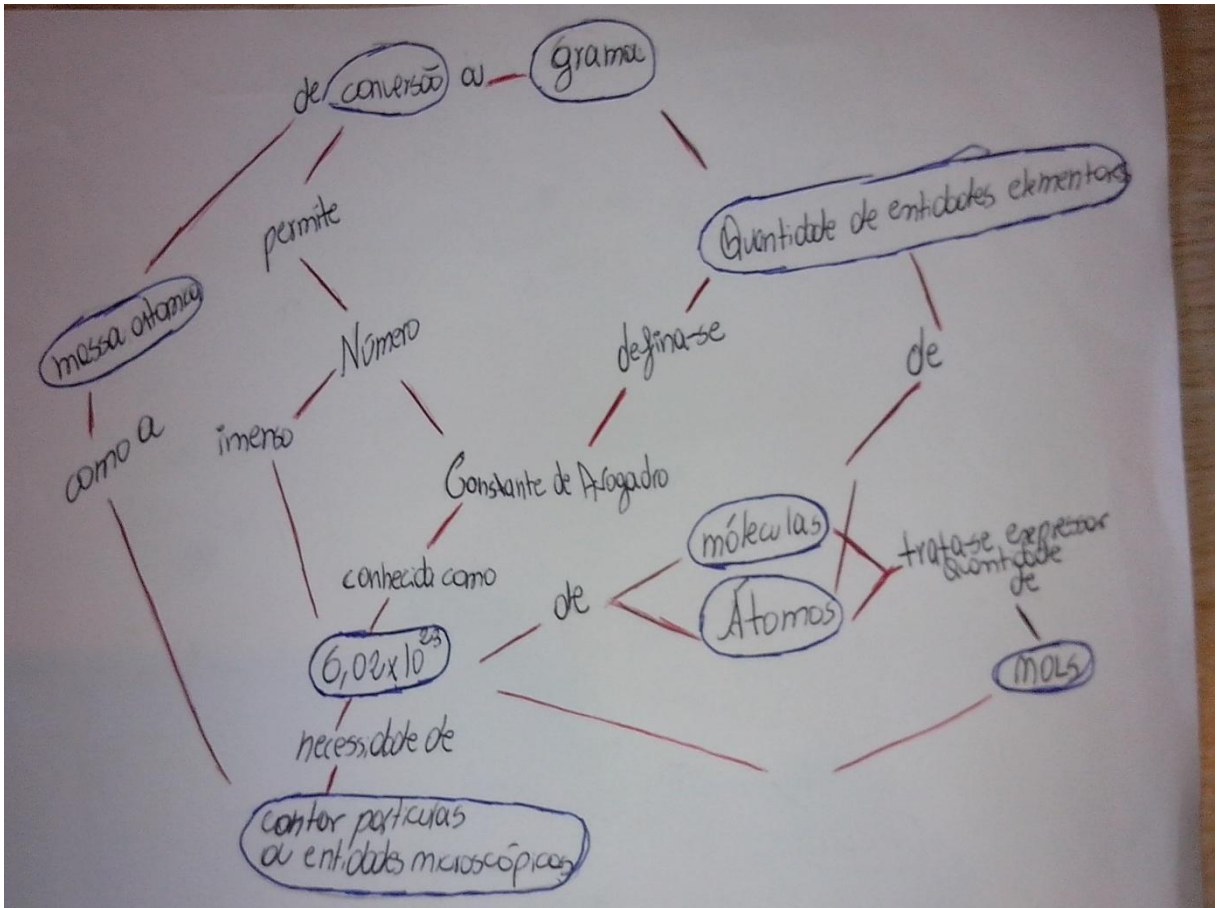 de conversão a grama
permite
Quantidade de entidades elementares
massa atomica
Número
defina-se
de
como a
imenso
Constante de Avogadro
móleculas
tratase expressar
Quantidade
de
conhecida como
de
Átomos
6,02x10²³
MOLS
necessidade de
contar particulas
a entidades microscópicas